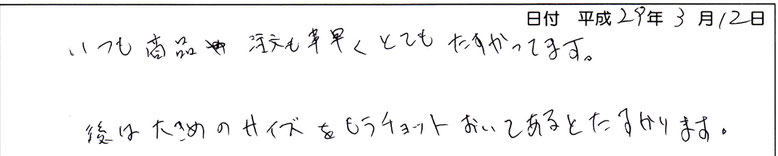 日付 平成29年3月12日
いつも商品 注文も早くとてもたすかってます。
後は大きめのサイズをもうチョットおいてあるとたすかります。